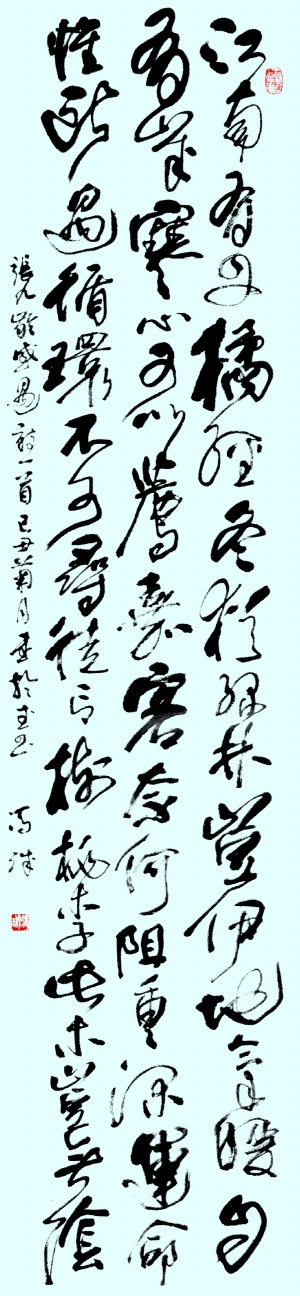 江南有丹橘經冬猶綠林豈伊地氣暖自
有歲寒心可以薦嘉客奈何阻重深運命
惟所遇循環不可尋徒言樹桃李此木豈無陰
張九齡感遇詩一首己丑菊月書於